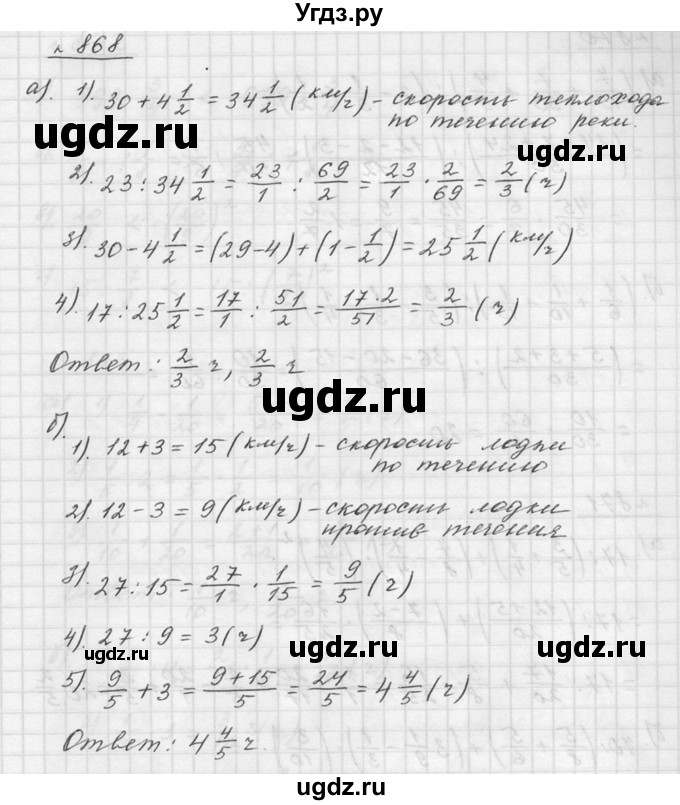 Угдз.ру
№ 868
а). 1). 30 + 4 1/2 = 34 1/2 (км/ч) – скорость теплохода
по течению реки.
ugdz.ru ugdz.ru
2). 23 : 34 1/2 = 23/1 : 69/2 = 23/1 · 2/69 = 2/3 (ч)
3). 30 – 4 1/2 = (29 – 4) + (1 – 1/2) = 25 1/2 (км/ч)
4). 17 : 25 1/2 = 17/1 : 51/2 = 17·2/51 = 2/3 (ч)
Ответ: 2/3 ч, 2/3 ч
ugdz.ru
б).
1). 12 + 3 = 15 (км/ч) – скорость лодки
по течению
2). 12 – 3 = 9 (км/ч) – скорость лодки
против течения
3). 27 : 15 = 27/1 · 1/15 = 9/5 (ч)
4). 27 : 9 = 3 (ч)
ugdz.ru ugdz.ru ugdz.ru
5). 9/5 + 3 = 9+15/5 = 24/5 = 4 4/5 (ч)
Ответ: 4 4/5 ч.
ugdz.ru